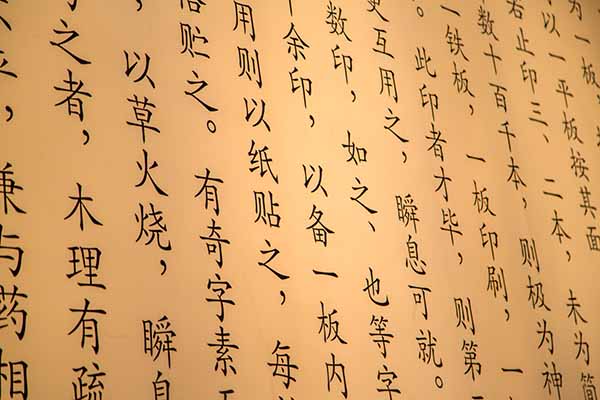 为一板,
以一平板按其面
若止印三、二本,未为简
数十百千本,则极为神
一铁板,一板印刷,一
。此印者才毕,则第
更互用之,瞬息可就。
数印,如之、也等字
十余印,以备一板内
用则以纸贴之,每
贮之。有奇字素
,以草火烧,瞬息
之者,木理有疏
平,兼与药相